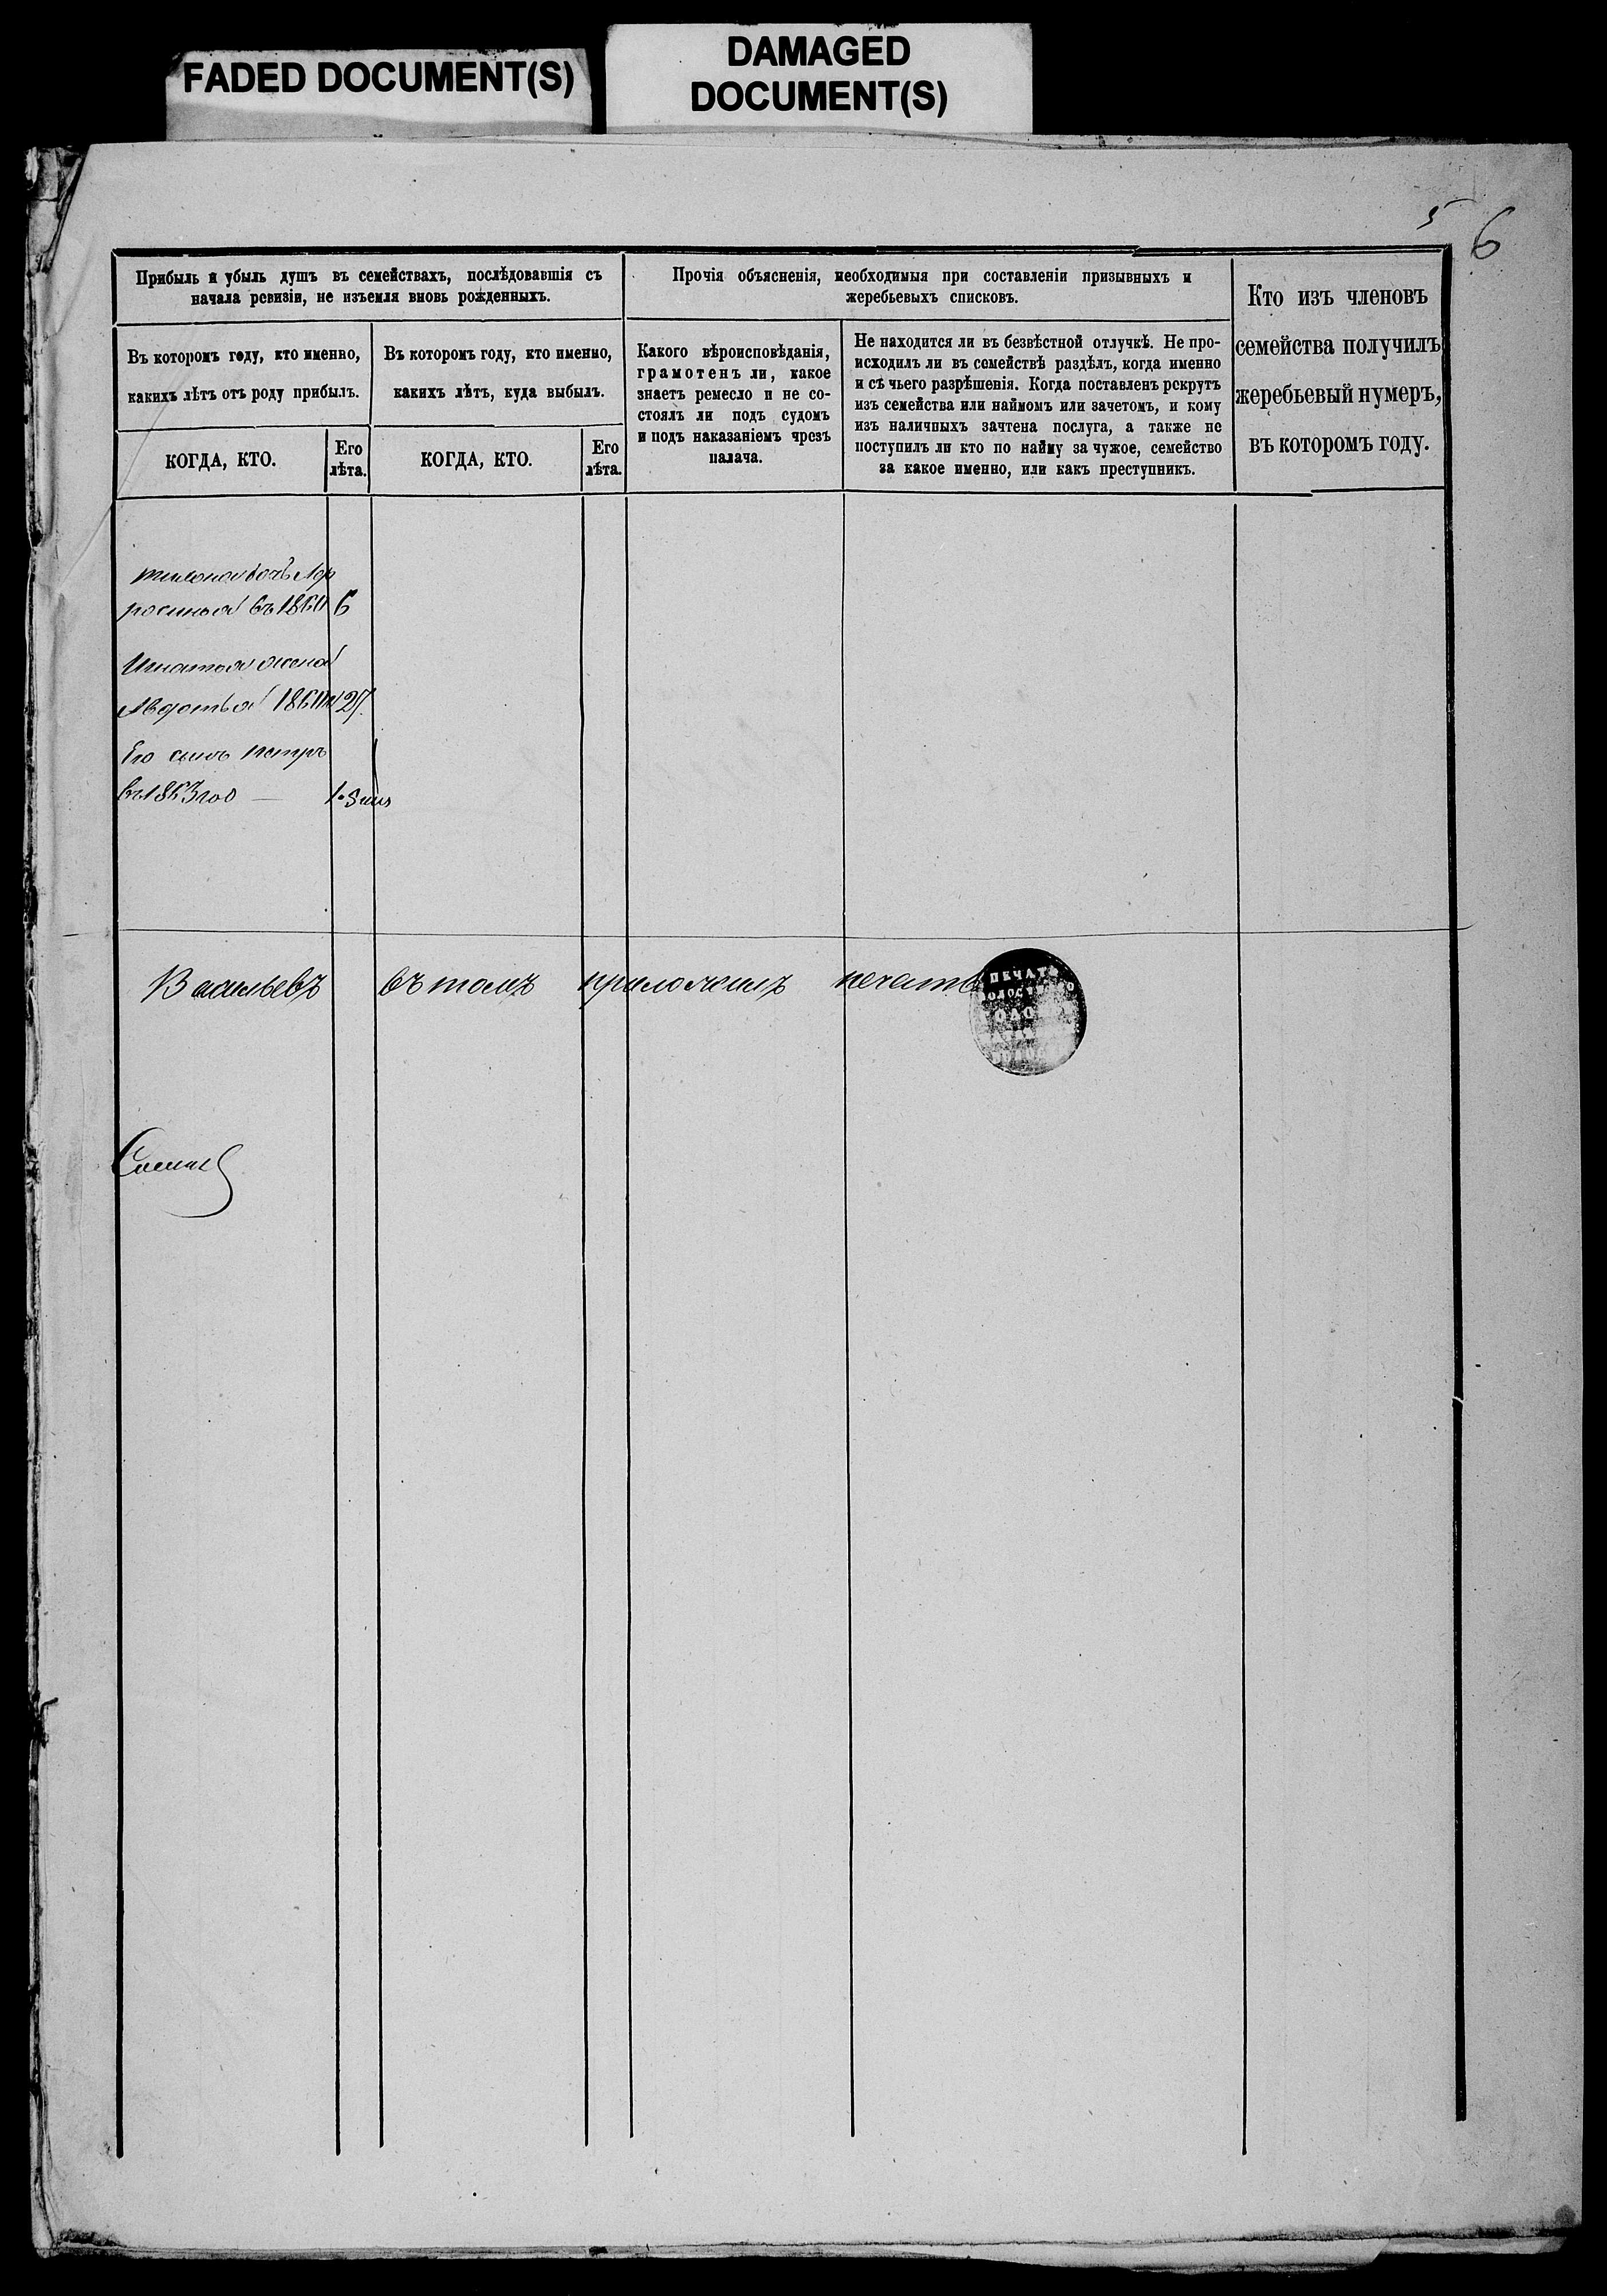 FADED DOCUMENT(S)
DAMAGED
DOCUMENT(S)
5
6
Прибыль и убыль душъ въ семействахъ, послѣдовавшія съ
начала ревизіи, не изъемля вновь рожденныхъ.
Въ которомъ году, кто именно,
какихъ лѣтъ отъ роду прибылъ.
КОГДА, КТО.
Его
лѣта.
Въ которомъ году, кто именно,
какихъ лѣтъ, куда выбылъ.
КОГДА, КТО.
Его
лѣта.
Прочія объясненія, необходимыя при составленіи призывныхъ и
жеребьевыхъ списковъ.
Какого вѣроисповѣданія,
грамотенъ ли, какое
знаетъ ремесло и не со-
стоялъ ли подъ судомъ
и подъ наказаніемъ чрезъ
палача.
Не находится ли въ безвѣстной отлучкѣ. Не про-
исходилъ ли въ семействѣ раздѣлъ, когда именно
и съ чьего разрѣшенія. Когда поставленъ рекрутъ
изъ семейства или наймомъ или зачетомъ, и кому
изъ наличныхъ зачтена послуга, а также не
поступилъ ли кто по найму за чужое, семейство
за какое именно, или какъ преступникъ.
Кто изъ членовъ
семейства получилъ
жеребьевый нумеръ,
въ которомъ году.
дочь Аф
росинья въ 6
Игнатья жена
Авдотья
Его сынъ петръ
въ 1863 год
Васильевъ въ томъ приложилъ печать
ПЕЧАТЬ